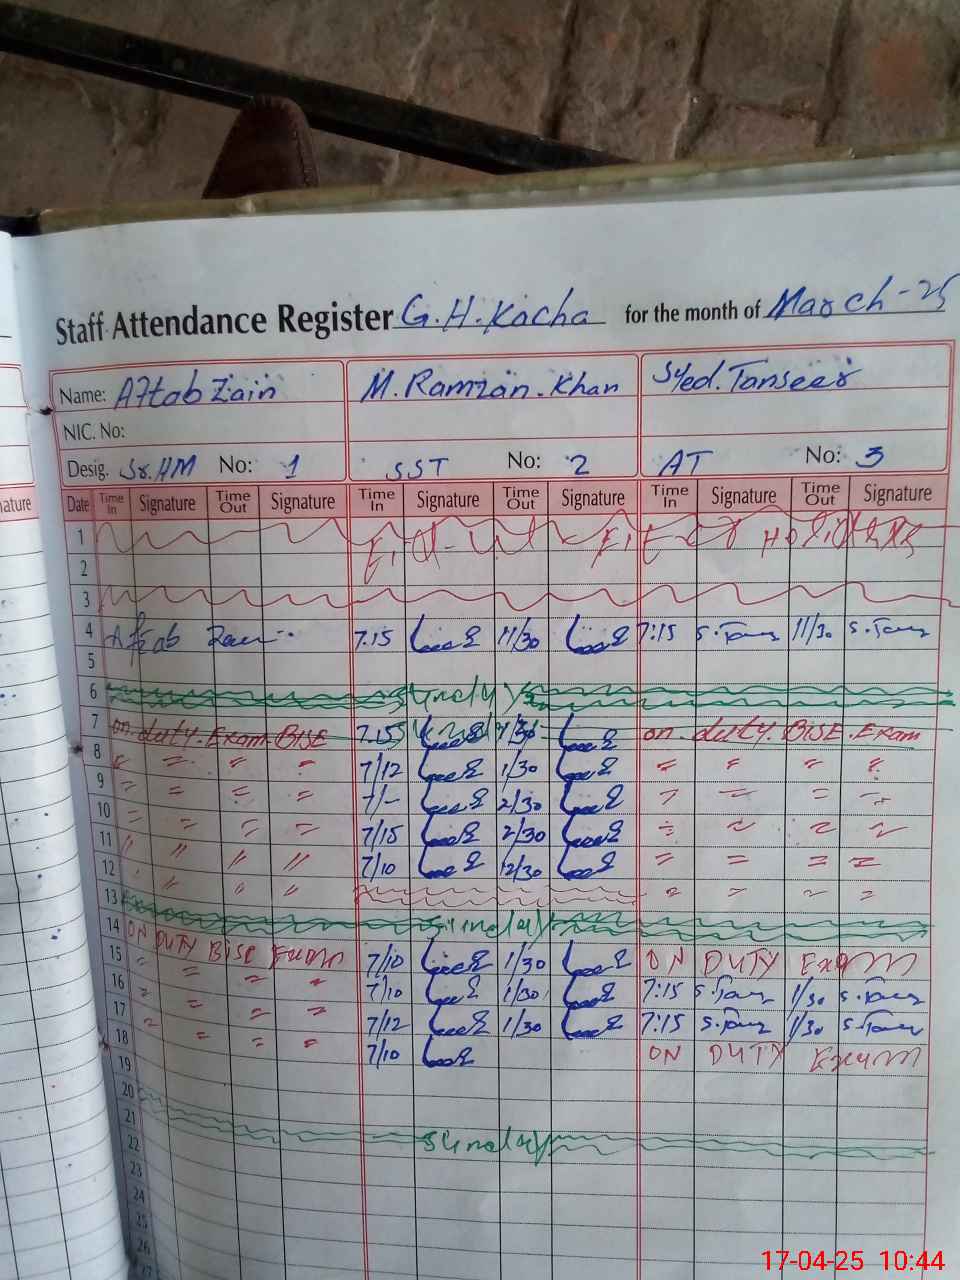 Staff Attendance Register G.H.Kacha for the month of March-25
Name: Aftab Zain M. Ramzan. Khan Syed. Tanseer
NIC. No:
Desig. Sr. HM No: 1 SST No: 2 AT No: 3
nature Date Time In Signature Time Out Signature Time In Signature Time Out Signature Time In Signature Time Out Signature
1 Eid-ul Holidays
2
3
4 Aftab Zain 7.15 11/30 7:15 11/30
5
6 Sunday
7 on duty Exam BISE 7.15 on duty BISE Exam
8 " " " " 7/12 1/30 " " " "
9 " " " " 7/- 2/30 " " " "
10 " " " " 7/15 2/30 " " " "
11 " " " " 7/10 12/30 " " " "
12 " " " " " " " "
13 Sunday
14 ON DUTY BISE EXAM 7/10 1/30 ON DUTY EXAM
15 " " " " 7/10 1/30 7:15 1/30
16 " " " " 7/12 1/30 7:15 1/30
17 " " " " 7/10 ON DUTY EXAM
18
19
20
21 Sunday
22
23
24
25
26
17-04-25 10:44